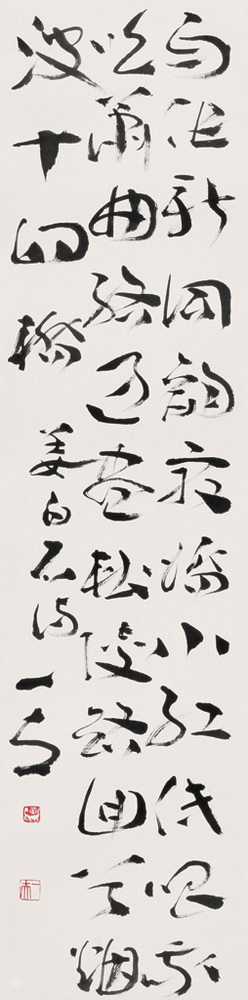 自作新词韵最娇小红低唱我
吹箫曲终过尽松陵路回首烟
波十四橋
姜白石诗